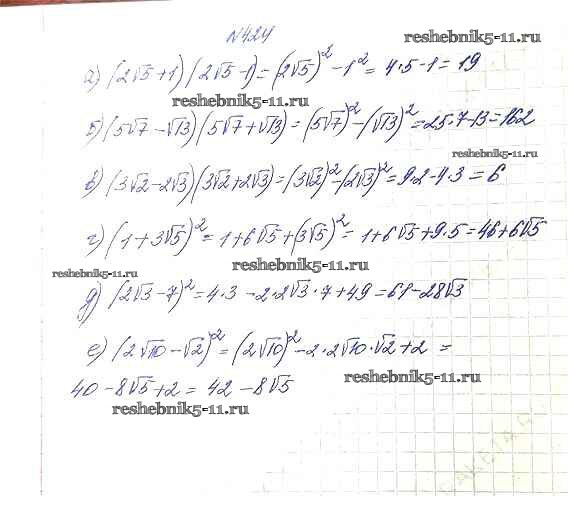 №424
reshebnik5-11.ru
а) (2√5+1)(2√5-1)=(2√5)²-1²=4·5-1=19
reshebnik5-11.ru
б) (5√7-√13)(5√7+√13)=(5√7)²-(√13)²=25·7-13=162
reshebnik5-11.ru
в) (3√2-2√3)(3√2+2√3)=(3√2)²-(2√3)²=9·2-4·3=6
г) (1+3√5)²=1+6√5+(3√5)²=1+6√5+9·5=46+6√5
reshebnik5-11.ru
reshebnik5-11.ru
д) (2√3-7)²=4·3-2·2√3·7+49=61-28√3
е) (2√10-√2)²=(2√10)²-2·2√10·√2+2=
reshebnik5-11.ru
40-8√5+2=42-8√5
reshebnik5-11.ru